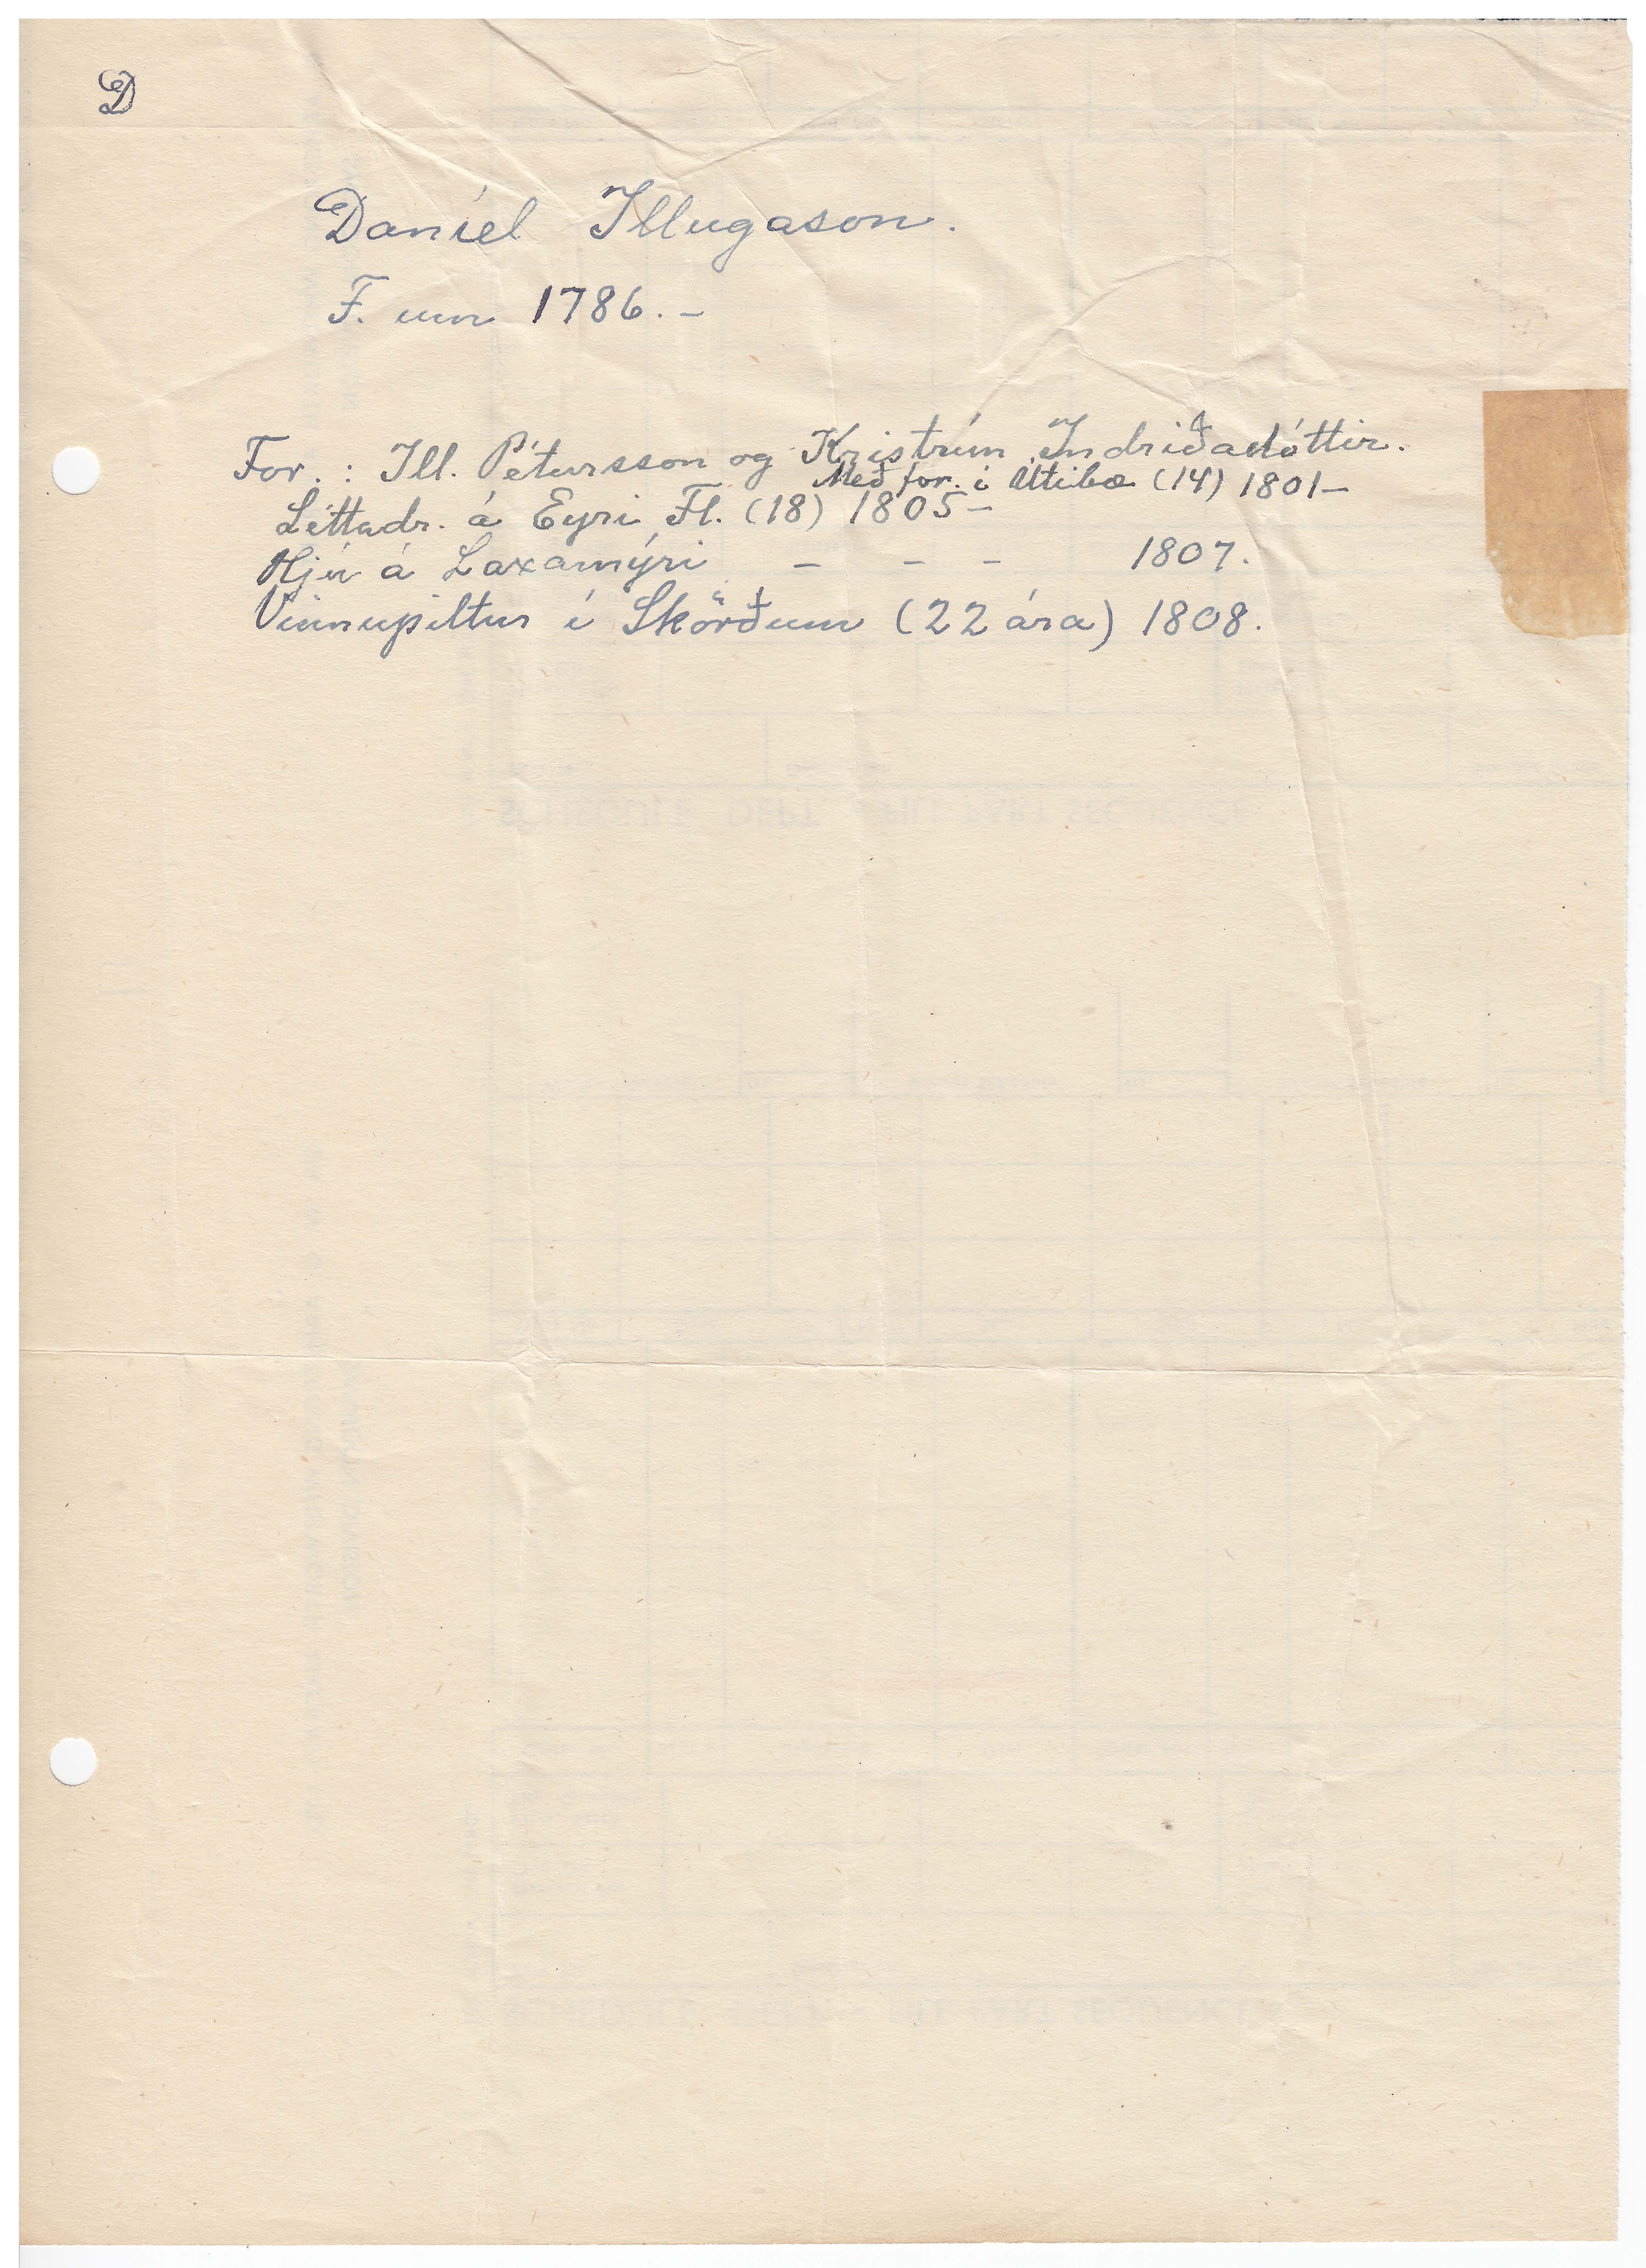 D
Daníel Illugason.
F. um 1786. –
For. : Ill. Pétursson og Kristrún Indriðadóttir.
Með for. í Útibæ (14) 1801–
Léttadr. á Eyri Fl. (18) 1805–
Hjú á Laxamýri – – – 1807.
Vinnupiltur í Skörðum (22 ára) 1808.